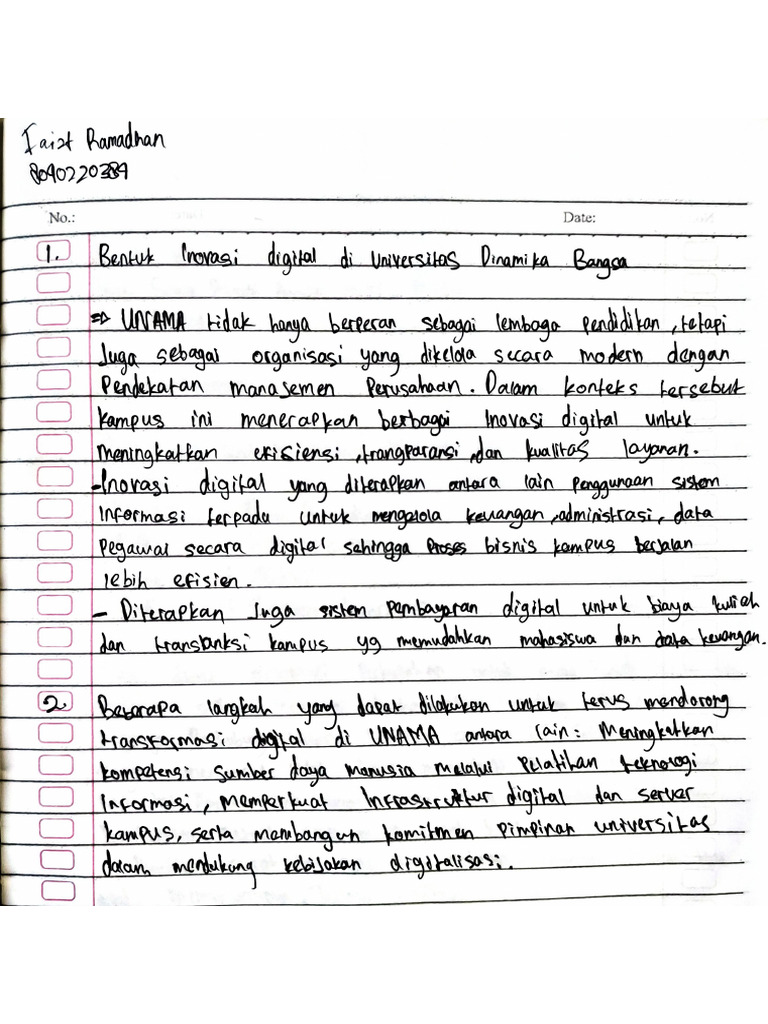 Faizt Ramadhan
8040220389
No.: Date:
1. Bentuk Inovasi digital di Universitas Dinamika Bangsa
⇒ UNAMA tidak hanya berperan sebagai lembaga pendidikan, tetapi
Juga sebagai organisasi yang dikelola secara modern dengan
Pendekatan manajemen Perusahaan. Dalam konteks tersebut
kampus ini menerapkan berbagai Inovasi digital untuk
meningkatkan efisiensi, tranparansi, dan kualitas layanan.
- Inovasi digital yang diterapkan antara lain penggunaan sistem
Informasi terpadu untuk mengelola keuangan, administrasi, data
Pegawai secara digital sehingga Proses bisnis kampus berjalan
lebih efisien.
- Diterapkan Juga sistem Pembayaran digital untuk biaya kuliah
dan transtanksi kampus yg memudahkan mahasiswa dan data keuangan.
2. Beberapa langkah yang dapat dilakukan untuk terus mendorong
transformasi digital di UNAMA antara lain: Meningkatkan
kompetensi sumber daya manusia melalui Pelatihan teknologi
Informasi, memperkuat Infrastruktur digital dan server
kampus, serta membangun komitmen pimpinan universitas
dalam mendukung kebijakan digitalisasi.